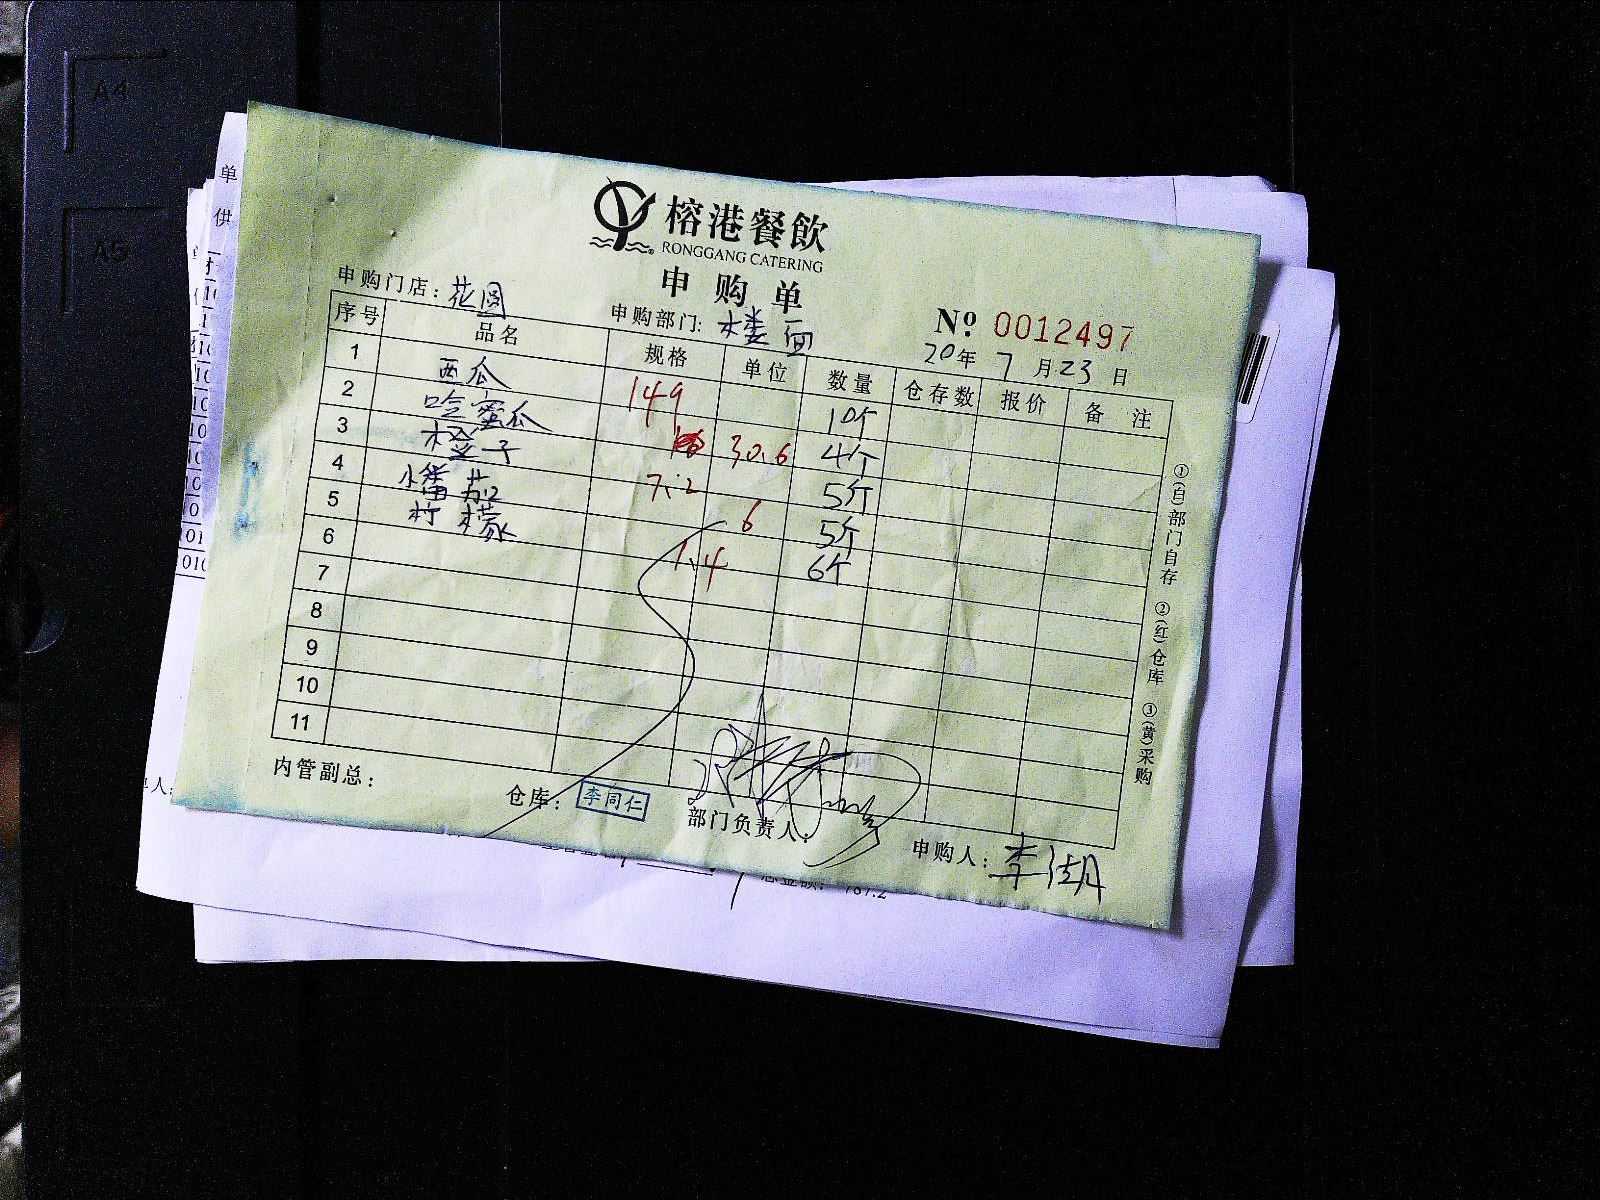 A4
A5
单
供
榕港餐飲
RONGGANG CATERING
申购单
申购门店：花圆
申购部门：楼面
Nº 0012497
20年7月23日
序号 品名 规格 单位 数量 仓存数 报价 备注
1 西瓜 149 10个
2 哈蜜瓜 30.6 4个
3 橙子 7.2 5个
4 小番茄 6 5个
5 柠檬 1.4 6个
6
7
8
9
10
11
①(白)部门自存 ②(红)仓库 ③(黄)采购
内管副总：
仓库：李同仁
部门负责人：
申购人：李湖
总金额：787.2